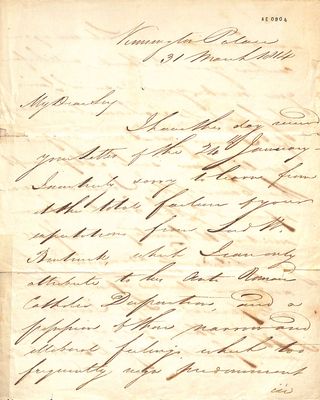 AE 0904
Kensington Palace
31 March 1814
My Dear Sir
I have this day received
your letter of the 24th January
I am truly sorry to learn from
it the total failure of your
expectations from Lord Wm
Bentinck, which I can only
attribute to his Anti Roman
Catholic Disposition, and a
of those narrow and
illiberal feelings which too
frequently reign predominant
in